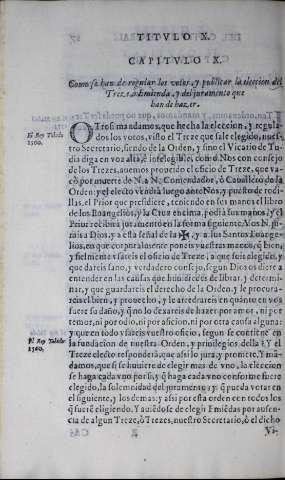 TITVLO X.
CAPITVLO X.
Como se han de regular los votos, y publicar la eleccion del
Treze, ò Emienda, y del juramento que
han de hazer.
El Rey Toledo
1560.
OTrosi mādamos, que hecha la eleccion, y regula-
dos los votos, visto el Treze que sale elegido, nues-
tro Secretario, siendo de la Orden, y sino el Vicario de Tu-
dia diga en voz alta, è inteligible, como Nos con consejo
de los Trezes, auemos proueido el oficio de Treze, que va-
cò por muerte de N. a N. Comendador, ò Cauallero de la
Orden: y el electo vendrà luego ante Nos, y puesto de rodi-
llas, el Prior que presidiere, teniendo en sus manos el libro
de los Euangelios, y la Cruz encima, pondrà sus manos, y el
Prior recibirà juramento en la forma siguiente. Vos N. ju-
rais a Dios, y a esta señal de la ✠, y a los Santos Euange-
lios, en que corporalmente poneis vuestras manos, q̄ bien,
y fielmente vsareis el oficio de Treze, a que sois elegido, y
que dareis sano, y verdadero consejo, segun Dios diere a
entender en las causas que huuieredes de librar, y determi-
nar, y que guardareis el derecho de la Orden, y le procura-
reis el bien, y prouecho, y le arredrareis en quanto en vos
fuere su daño, y q̄ no lo dexareis de hazer por amor, ni por
temor, ni por odio, ni por aficion, ni por otra causa alguna:
y que en todo vsareis vuestro oficio, segun se contiene en
El Rey Toledo
1560.
la fundacion de nuestra Orden, y priuilegios della: Y el
Treze electo responderà, que assi lo jura, y promete. Y mā-
damos, que si se huuiere de elegir mas de vno, la eleccion
se haga cada vno por si, y q̄ haga cada vno conforme fuere
elegido, la solemnidad del juramento; y q̄ pueda votar en
el siguiente, y los demas: y assi por esta orden con todos los
q̄ fuerē eligiendo. Y auiēdose de elegir Emiēdas por ausen-
cia de algun Treze, ò Trezes, nuestro Secretario, ò el dicho
Vi-